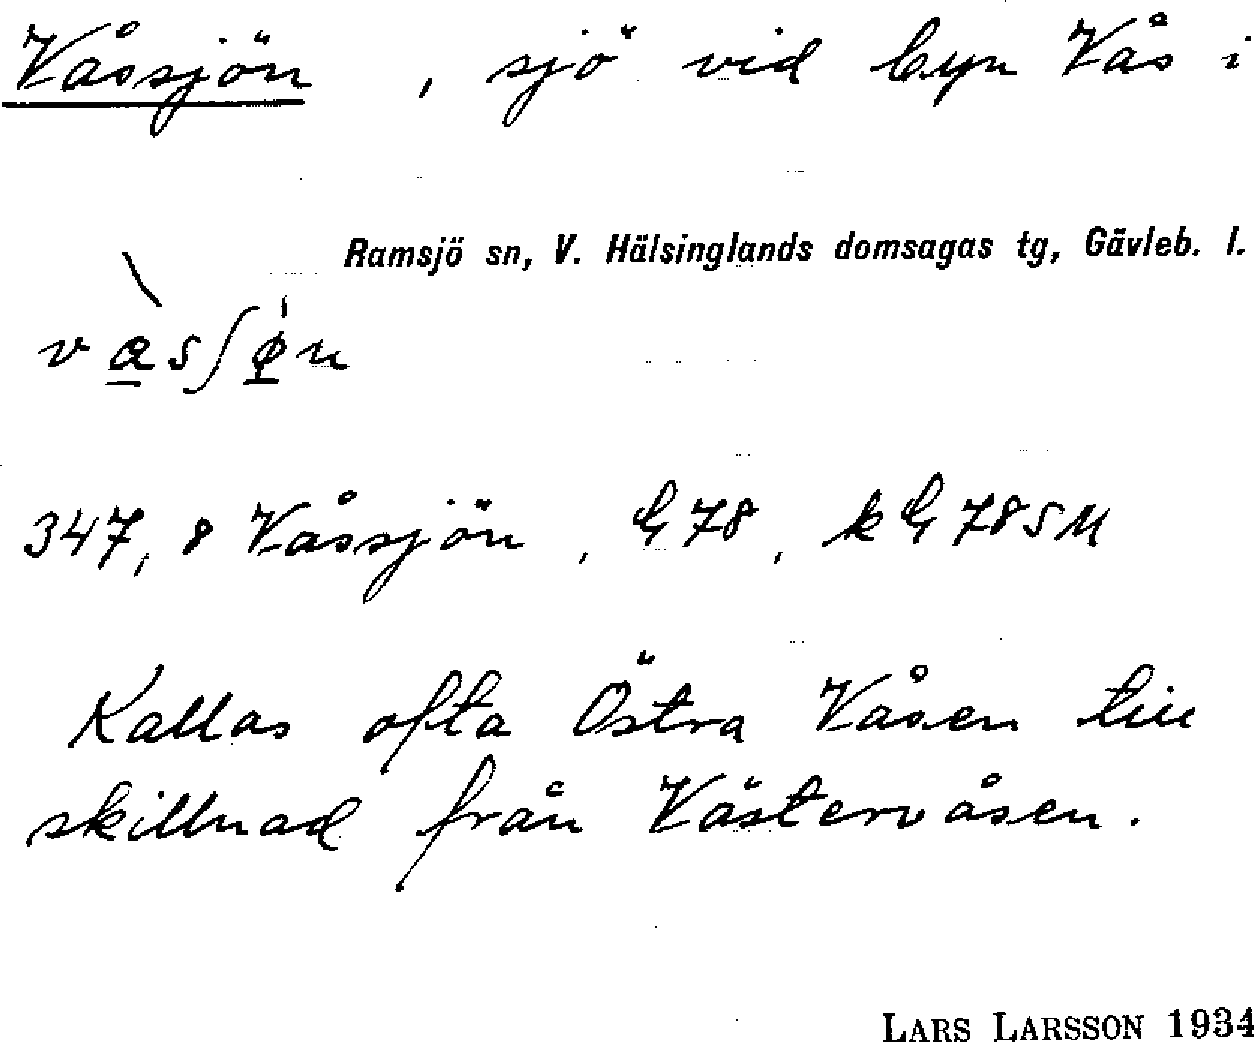 Våssjön, sjö vid byn Vås i
Ramsjö sn, V. Hälsinglands domsagas tg, Gävleb. l.
347, 8 Våssjön, G78, k G785M
Kallas ofta Östra Våsen till
skillnad från Västervåsen.
LARS LARSSON 1934